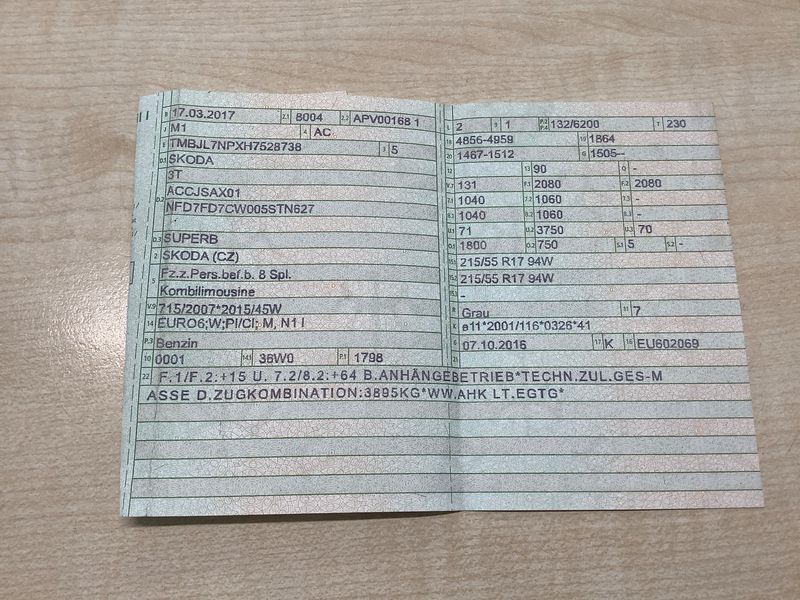 B 17.03.2017 2.1 8004 2.2 APV00168 1
J M1 4 AC
E TMBJL7NPXH7528738 3 5
D.1 SKODA
D.2 3T
ACCJSAX01
NFD7FD7CW005STN627
D.3 SUPERB
2 SKODA (CZ)
5 Fz.z.Pers.bef.b. 8 Spl.
Kombilimousine
V.9 715/2007*2015/45W
14 EURO6;W;PI/CI; M, N1 I
P.3 Benzin
10 0001 14.1 36W0 P.1 1798
L 2 9 1 P.2 P.4 132/6200 T 230
18 4856-4959 19 1864
20 1467-1512 G 1505--
12 - 13 90 Q -
V.7 131 F.1 2080 F.2 2080
7.1 1040 7.2 1060 7.3 -
8.1 1040 8.2 1060 8.3 -
U.1 71 U.2 3750 U.3 70
O.1 1800 O.2 750 S.1 5 S.2 -
15.1 215/55 R17 94W
15.2 215/55 R17 94W
15.3 -
R Grau 11 7
K e11*2001/116*0326*41
6 07.10.2016 17 K 16 EU602069
21
22 F.1/F.2:+15 U. 7.2/8.2:+64 B.ANHÄNGEBETRIEB*TECHN.ZUL.GES-M
ASSE D.ZUGKOMBINATION:3895KG*WW.AHK LT.EGTG*